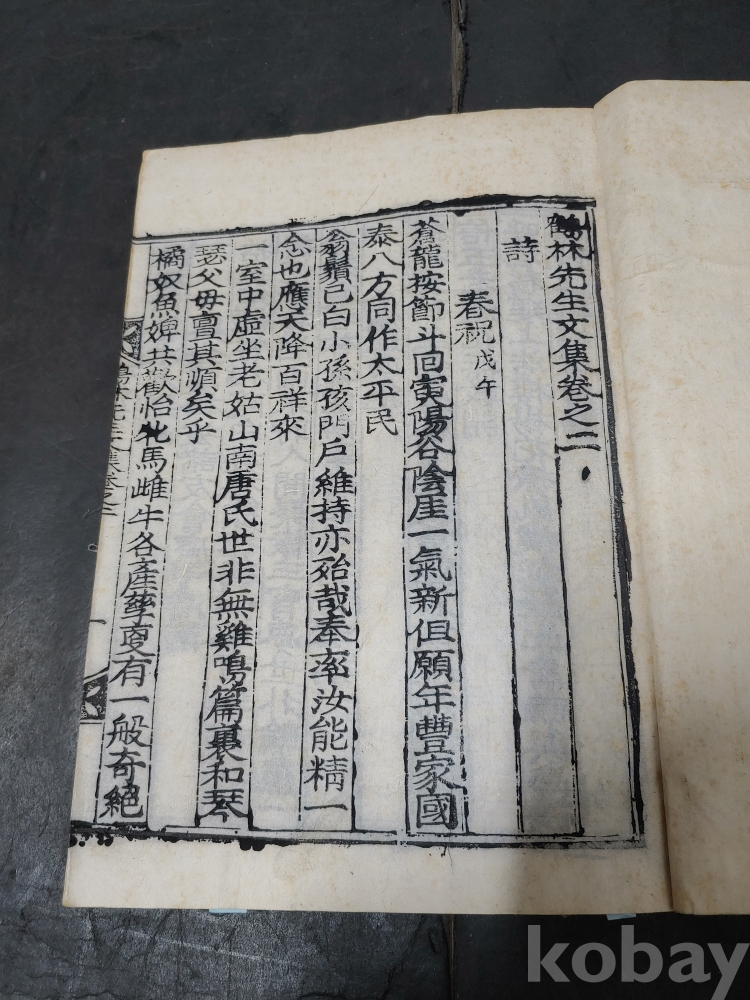 鶴林先生文集卷之二
詩
春祝戊午
蒼龍按節斗回寅陽谷陰崖一氣新但願年豐家國
泰八方同作太平民
翁鬚已白小孫孩門戶維持亦殆哉奉率汝能精一
念也應天降百祥來
一室中虛坐老姑山南唐氏世非無雞鳴篇裏和琴
瑟父母亶其順矣乎
橘奴魚婢共歡怡牝馬雌牛各產孳更有一般奇絕
kobay